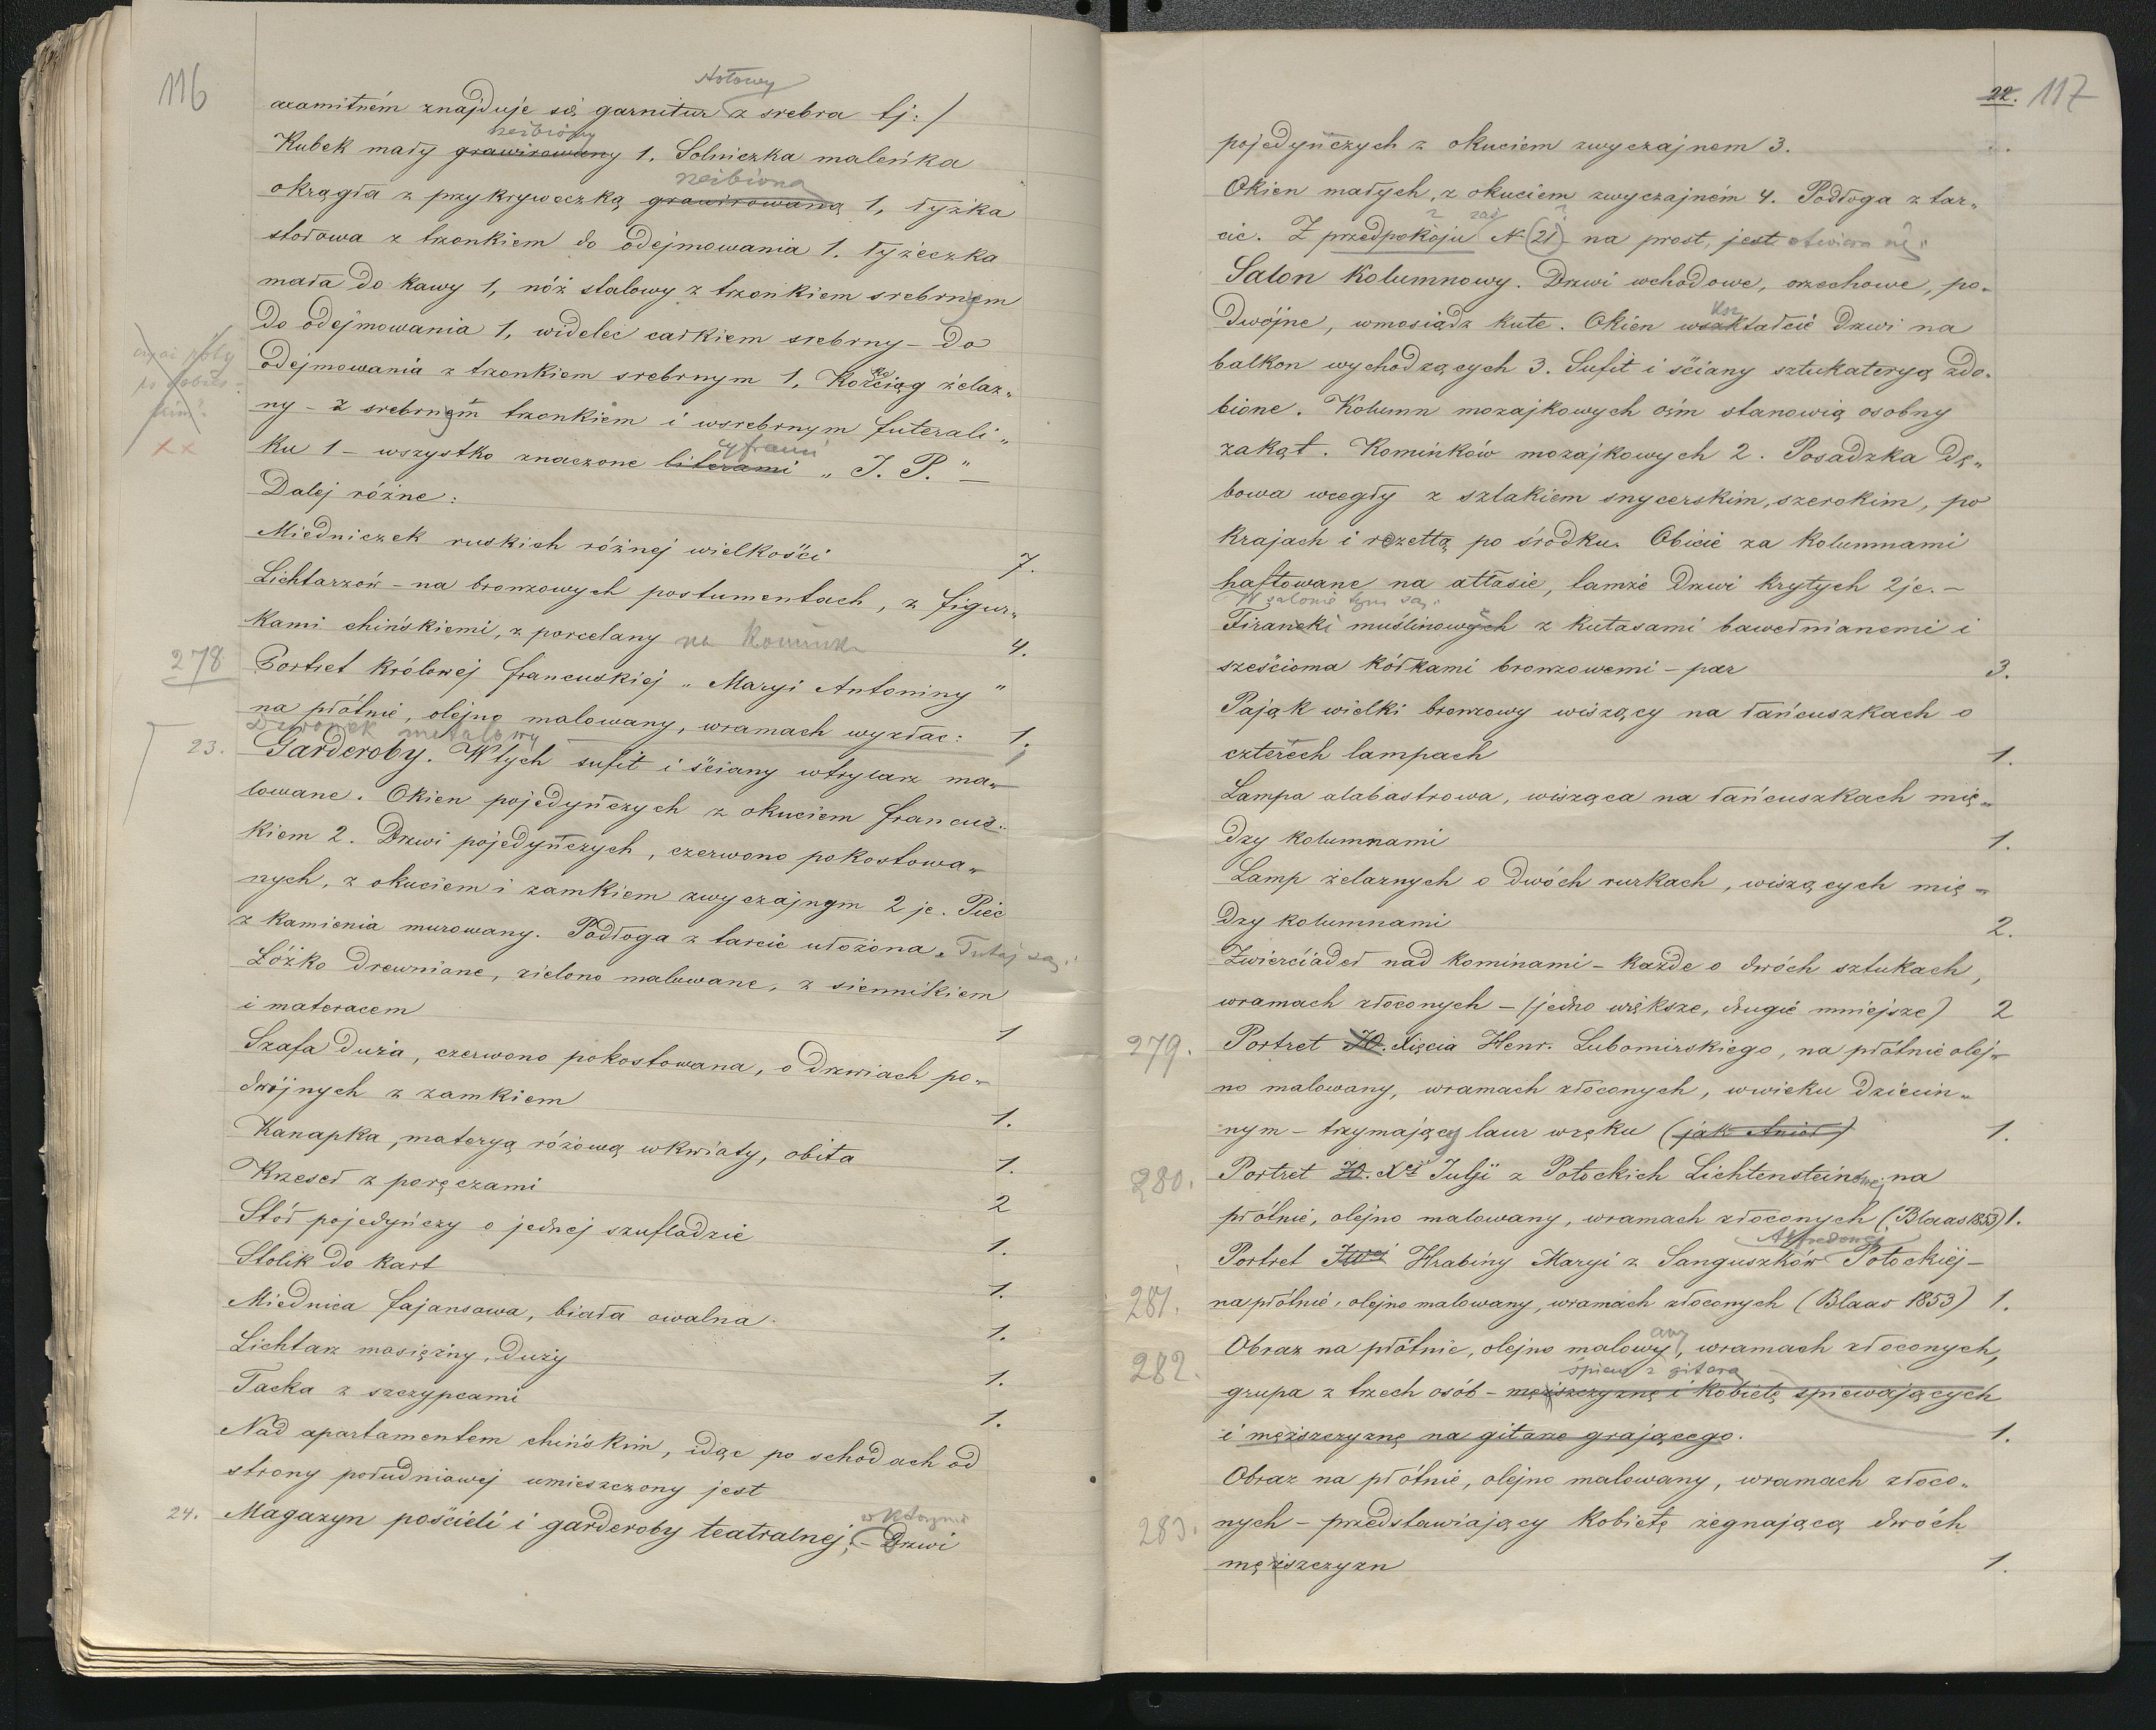 116
stołowy
axamitném znajduje się garnitur z srebra tj:/
rzeźbiony
Kubek mały grawirowany 1. Solniczka maleńka
rzeźbiona
okrągła z przykryweczką grawirowaną 1, łyżka
stołowa z trzonkiem do odejmowania 1. łyżeczka
mała do kawy 1, nóż stalowy z trzonkiem srebrnym
do odejmowania 1, widelec całkiem srebrny – do
odejmowania z trzonkiem srebrnym 1. Korkociąg żelaz„
ny – z srebrnym trzonkiem i wsrebrnym futerali„
cyframi
ku 1 – wszystko znaczone literami „J. P." –
Dalej różne:
Miedniczek ruskich różnej wielkości 7.
Lichtarzów – na bronzowych postumentach, z figur„
kami chińskiemi, z porcelany na kominku 4.
278 Portret Królowej francuskiej „Maryi Antoniny"
na płótnie, olejno malowany, wramach wyzłac: 1.
Dzwonek metalowy 1
23. Garderoby. Wtych sufit i ściany wtrylarz ma„
lowane. Okien pojedyńczych z okuciem francus„
kiem 2. Drzwi pojedyńczych, czerwono pokostowa„
nych, z okuciem i zamkiem zwyczajnym 2je. Piéc
z kamienia murowany. Podłoga z tarcic ułożona. Tutaj są:
Łóżko drewniane, zielono malowane, z siennikiem
i materacem 1
Szafa duża, czerwono pokostowana, o drzwiach po„
dwójnych z zamkiem 1.
Kanapka, materyą różową wkwiaty, obita 1.
Krzeseł z poręczami 2
Stół pojedyńczy o jednej szufladzie 1.
Stolik do kart 1.
Miednica fajansowa, biała owalna. 1.
Lichtarz mosiężny, duży 1.
Tacka z szczypcami 1.
Nad apartamentem chińskim, idąc po schodach od
strony południowej umieszczony jest
w którym
24. Magazyn pościeli i garderoby teatralnej, – Drzwi
22. 117
pojedyńczych z okuciem zwyczajnem 3.
Okien małych, z okuciem zwyczajném 4. Podłoga z tar„
zaś
cic. Z przedpokoju N (21) na prost, jest otwiera się:
Salon Kolumnowy. Drzwi wchodowe, orzechowe, po„
dwójne, wmosiądz kute. Okien wszkształcie drzwi na
balkon wychodzących 3. Sufit i ściany sztukateryą zdo„
bione. Kolumn mozajkowych ośm stanowią osobny
zakąt. Kominków mozajkowych 2. Posadzka dę„
bowa wcegły z szlakiem snycerskim, szerokim, po
krajach i rozettą po środku. Obicie za kolumnami
haftowane na attłasie, tamże drzwi krytych 2je. –
W salonie tym są:
Firanki muślinowych z kutasami bawełnianemi i
sześcioma kółkami bronzowemi – par 3.
Pająk wielki bronzowy wiszący na łańcuszkach o
czterech lampach 1.
Lampa alabastrowa, wisząca na łańcuszkach mię„
dzy kolumnami 1.
Lamp żelaznych o dwóch rurkach, wiszących mię„
dzy kolumnami 2.
Zwierciadeł nad kominami – każde o dwóch sztukach,
wramach złoconych – (jedno większe, drugie mniejsze) 2
279. Portret JO. Xięcia Henr. Lubomirskiego, na płótnie olej„
no malowany, wramach złoconych, wwieku dziecin„
nym – trzymający laur wręku (jak Anioł) 1.
280. Portret JO. Xci Julji z Potockich Lichtensteinowej na
płótnie, olejno malowany, wramach złoconych (Blaas 1853) 1.
Alfredowej
Portret JWej Hrabiny Maryi z Sanguszków Potockiéj –
281. na płótnie, olejno malowany, wramach złoconych (Blaas 1853) 1.
any
282. Obraz na płótnie, olejno malowy, wramach złoconych,
śpiew z gitarą
grupa z trzech osób – męższczyznę i kobietę spiewających
i męższczyznę na gitarze grającego. 1.
Obraz na płótnie, olejno malowany, wramach złoco„
283. nych – przedstawiający kobietę żegnającą dwóch
męższczyzn 1.